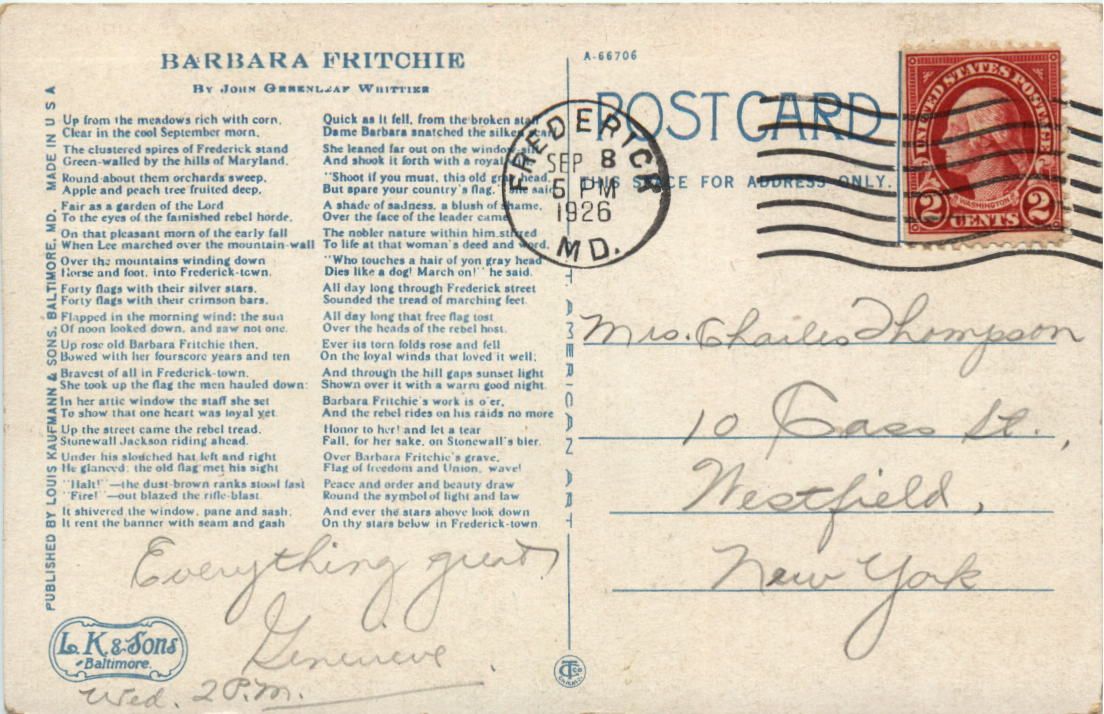 BARBARA FRITCHIE
BY JOHN GREENLEAF WHITTIER
Up from the meadows rich with corn,
Clear in the cool September morn,
The clustered spires of Frederick stand
Green-walled by the hills of Maryland.
Round about them orchards sweep,
Apple and peach tree fruited deep,
Fair as a garden of the Lord
To the eyes of the famished rebel horde,
On that pleasant morn of the early fall
When Lee marched over the mountain-wall
Over the mountains winding down
Horse and foot, into Frederick-town.
Forty flags with their silver stars,
Forty flags with their crimson bars,
Flapped in the morning wind: the sun
Of noon looked down, and saw not one.
Up rose old Barbara Fritchie then,
Bowed with her fourscore years and ten
Bravest of all in Frederick-town,
She took up the flag the men hauled down:
In her attic window the staff she set
To show that one heart was loyal yet.
Up the street came the rebel tread,
Stonewall Jackson riding ahead.
Under his slouched hat left and right
He glanced: the old flag met his sight
"Halt!"—the dust-brown ranks stood fast
"Fire!"—out blazed the rifle-blast.
It shivered the window, pane and sash;
It rent the banner with seam and gash
Quick as it fell, from the broken staff
Dame Barbara snatched the silken scarf
She leaned far out on the window-sill
And shook it forth with a royal
"Shoot if you must, this old gray head,
But spare your country's flag," she said
A shade of sadness, a blush of shame,
Over the face of the leader came
The nobler nature within him stirred
To life at that woman's deed and word.
"Who touches a hair of yon gray head
Dies like a dog! March on!" he said.
All day long through Frederick street
Sounded the tread of marching feet
All day long that free flag tost
Over the heads of the rebel host.
Ever its torn folds rose and fell
On the loyal winds that loved it well;
And through the hill gaps sunset light
Shown over it with a warm good night.
Barbara Fritchie's work is o'er,
And the rebel rides on his raids no more
Honor to her! and let a tear
Fall, for her sake, on Stonewall's bier.
Over Barbara Fritchie's grave,
Flag of freedom and Union, wave!
Peace and order and beauty draw
Round the symbol of light and law
And ever the stars above look down
On thy stars below in Frederick-town
PUBLISHED BY LOUIS KAUFMANN & SONS, BALTIMORE, MD. MADE IN USA
Everything great,
Genevieve.
Wed. 2 P.M.
L. K. & Sons
Baltimore.
A-66706
POST CARD
THIS SPACE FOR ADDRESS ONLY.
FREDERICK
SEP 8
5 PM
1926
MD.
UNITED STATES POSTAGE
WASHINGTON
2 CENTS 2
Mrs. Charles Thompson
10 Cass St.,
Westfield,
New York